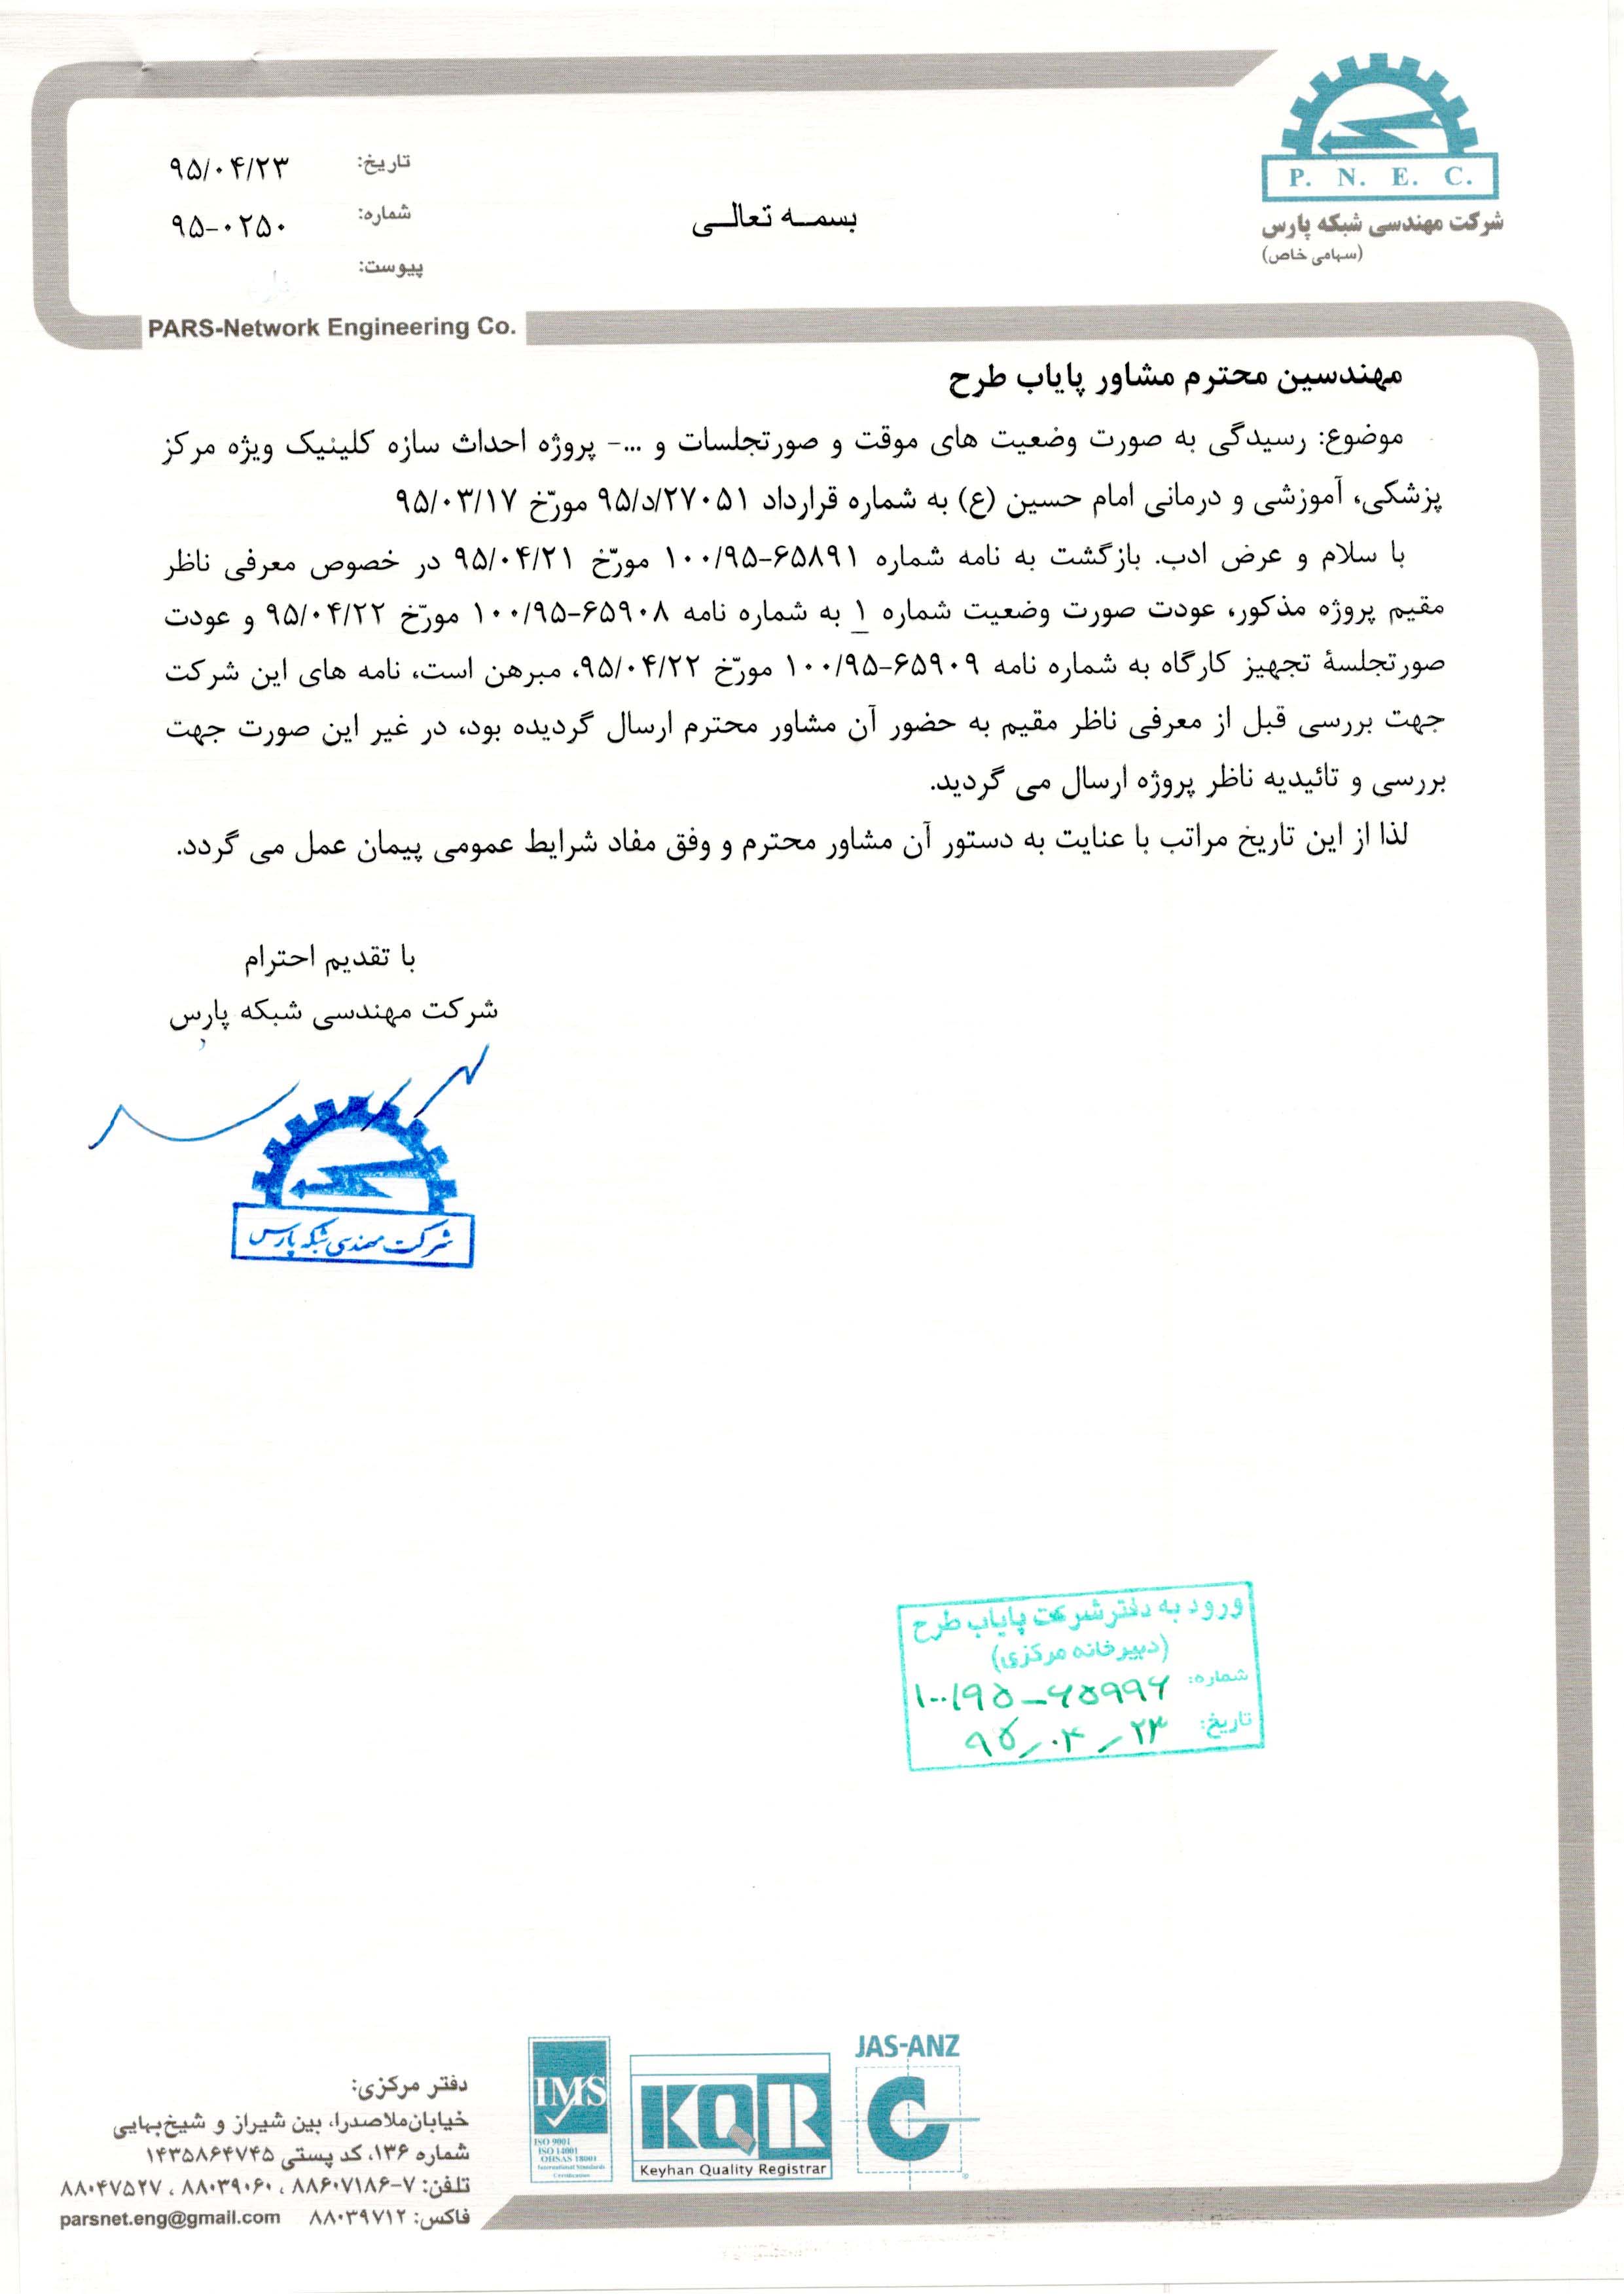 P. N. E. C.
شرکت مهندسی شبکه پارس
(سهامی خاص)
بسمه تعالی
تاریخ: ۹۵/۰۴/۲۳
شماره: ۹۵-۰۲۵۰
پیوست:
PARS-Network Engineering Co.
مهندسین محترم مشاور پایاب طرح
موضوع: رسیدگی به صورت وضعیت های موقت و صورتجلسات و ...- پروژه احداث سازه کلینیک ویژه مرکز
پزشکی، آموزشی و درمانی امام حسین (ع) به شماره قرارداد ۹۵/د/۲۷۰۵۱ مورّخ ۹۵/۰۳/۱۷
با سلام و عرض ادب. بازگشت به نامه شماره ۱۰۰/۹۵-۶۵۸۹۱ مورّخ ۹۵/۰۴/۲۱ در خصوص معرفی ناظر
مقیم پروژه مذکور، عودت صورت وضعیت شماره ۱ به شماره نامه ۱۰۰/۹۵-۶۵۹۰۸ مورّخ ۹۵/۰۴/۲۲ و عودت
صورتجلسهٔ تجهیز کارگاه به شماره نامه ۱۰۰/۹۵-۶۵۹۰۹ مورّخ ۹۵/۰۴/۲۲، مبرهن است، نامه های این شرکت
جهت بررسی قبل از معرفی ناظر مقیم به حضور آن مشاور محترم ارسال گردیده بود، در غیر این صورت جهت
بررسی و تائیدیه ناظر پروژه ارسال می گردید.
لذا از این تاریخ مراتب با عنایت به دستور آن مشاور محترم و وفق مفاد شرایط عمومی پیمان عمل می گردد.
با تقدیم احترام
شرکت مهندسی شبکه پارس
شرکت مهندسی شبکه پارس
ورود به دفتر شرکت پایاب طرح
(دبیرخانه مرکزی)
شماره: ۱۰۰/۹۵-۶۵۹۹۶
تاریخ: ۹۵/۰۴/۲۳
JAS-ANZ
KQR
Keyhan Quality Registrar
IMS
ISO 9001
ISO 14001
OHSAS 18001
International Standards
Certification
دفتر مرکزی:
خیابان ملاصدرا، بین شیراز و شیخ بهایی
شماره ۱۳۶، کد پستی ۱۴۳۵۸۶۴۷۴۵
تلفن: ۷-۸۸۶۰۷۱۸۶ ، ۸۸۰۳۹۰۶۰ ، ۸۸۰۴۷۵۲۷
فاکس: ۸۸۰۳۹۷۱۲ parsnet.eng@gmail.com